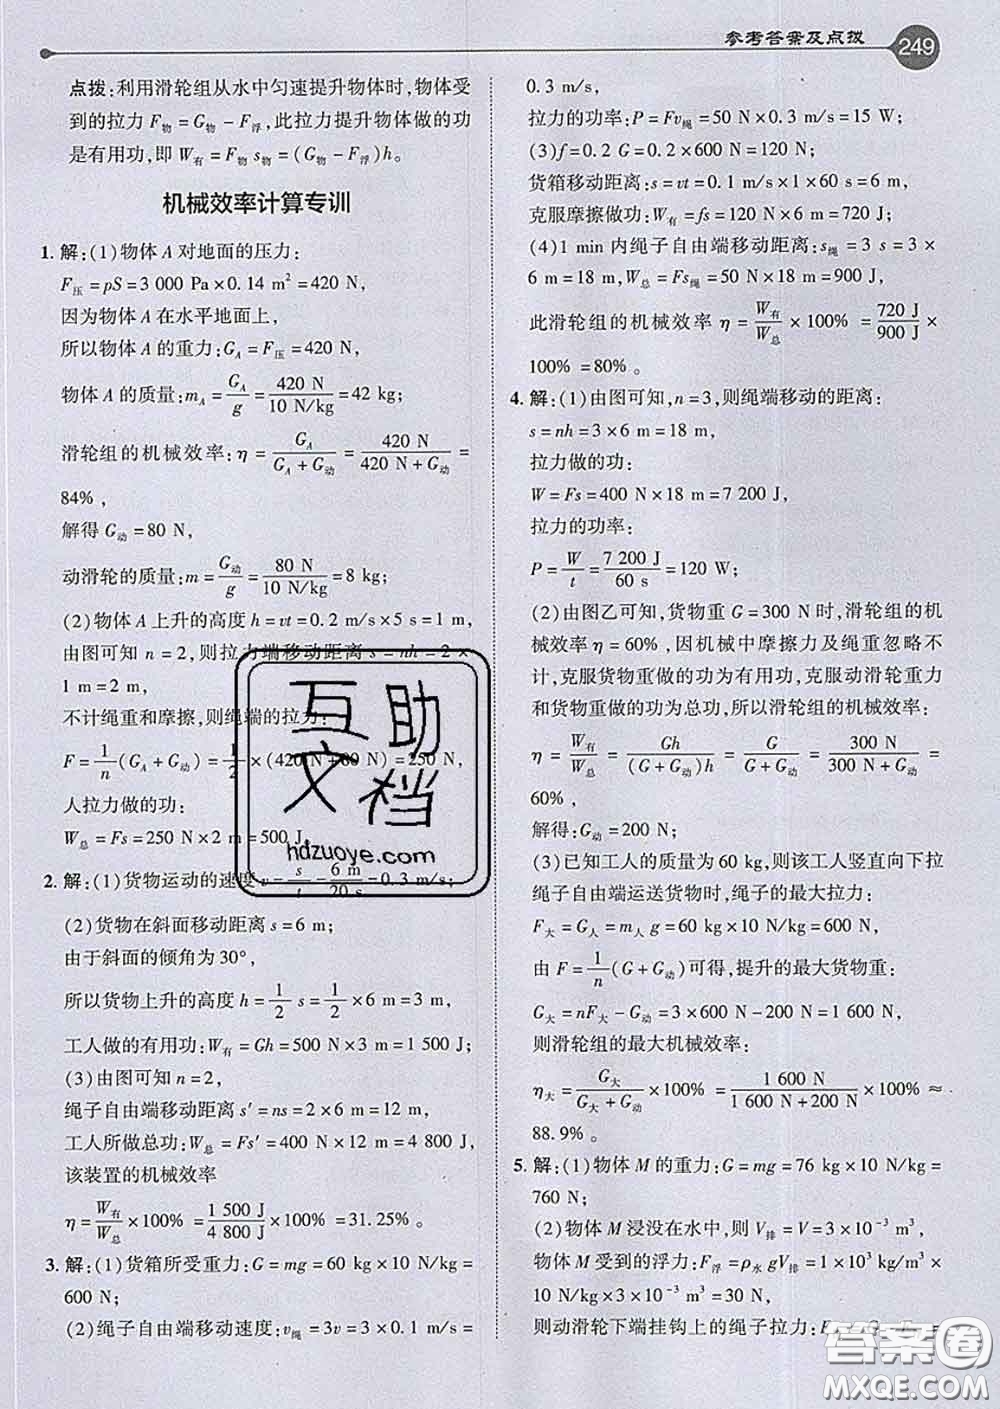 参考答案及点拨
249
点拨:利用滑轮组从水中匀速提升物体时,物体受
到的拉力 F物 = G物 - F浮,此拉力提升物体做的功
是有用功,即 W有 = F物 s物 = (G物 - F浮)h。
机械效率计算专训
1. 解:(1)物体 A 对地面的压力:
F压 = pS = 3 000 Pa × 0.14 m² = 420 N,
因为物体 A 在水平地面上,
所以物体 A 的重力:G_A = F压 = 420 N,
物体 A 的质量:m_A = G_A/g = 420 N/10 N/kg = 42 kg;
滑轮组的机械效率:η = G_A/(G_A + G动) = 420 N/(420 N + G动) =
84%,
解得 G动 = 80 N,
动滑轮的质量:m = G动/g = 80 N/10 N/kg = 8 kg;
(2)物体 A 上升的高度 h = vt = 0.2 m/s × 5 s = 1 m,
由图可知 n = 2,则拉力端移动距离 s = nh = 2 ×
1 m = 2 m,
不计绳重和摩擦,则绳端的拉力:
F = 1/n (G_A + G动) = 1/2 × (420 N + 80 N) = 250 N,
人拉力做的功:
W总 = Fs = 250 N × 2 m = 500 J
2. 解:(1)货物运动的速度 v = s/t = 6 m/20 s = 0.3 m/s;
(2)货物在斜面移动距离 s = 6 m;
由于斜面的倾角为 30°,
所以货物上升的高度 h = 1/2 s = 1/2 × 6 m = 3 m,
工人做的有用功:W有 = Gh = 500 N × 3 m = 1 500 J;
(3)由图可知 n = 2,
绳子自由端移动距离 s′ = ns = 2 × 6 m = 12 m,
工人所做总功:W总 = Fs′ = 400 N × 12 m = 4 800 J,
该装置的机械效率
η = W有/W总 × 100% = 1 500 J/4 800 J × 100% = 31.25%。
3. 解:(1)货箱所受重力:G = mg = 60 kg × 10 N/kg =
600 N;
(2)绳子自由端移动速度:v绳 = 3v = 3 × 0.1 m/s =
0.3 m/s,
拉力的功率:P = Fv绳 = 50 N × 0.3 m/s = 15 W;
(3)f = 0.2 G = 0.2 × 600 N = 120 N;
货箱移动距离:s = vt = 0.1 m/s × 1 × 60 s = 6 m,
克服摩擦做功:W有 = fs = 120 N × 6 m = 720 J;
(4)1 min 内绳子自由端移动距离:s绳 = 3 s = 3 ×
6 m = 18 m,W总 = Fs绳 = 50 N × 18 m = 900 J,
此滑轮组的机械效率 η = W有/W总 × 100% = 720 J/900 J ×
100% = 80%。
4. 解:(1)由图可知,n = 3,则绳端移动的距离:
s = nh = 3 × 6 m = 18 m,
拉力做的功:
W = Fs = 400 N × 18 m = 7 200 J,
拉力的功率:
P = W/t = 7 200 J/60 s = 120 W;
(2)由图乙可知,货物重 G = 300 N 时,滑轮组的机
械效率 η = 60%,因机械中摩擦力及绳重忽略不
计,克服货物重做的功为有用功,克服动滑轮重力
和货物重做的功为总功,所以滑轮组的机械效率:
η = W有/W总 = Gh/(G + G动)h = G/(G + G动) = 300 N/(300 N + G动) =
60%,
解得:G动 = 200 N;
(3)已知工人的质量为 60 kg,则该工人竖直向下拉
绳子自由端运送货物时,绳子的最大拉力:
F大 = G人 = m人 g = 60 kg × 10 N/kg = 600 N,
由 F = 1/n (G + G动)可得,提升的最大货物重:
G大 = nF大 - G动 = 3 × 600 N - 200 N = 1 600 N,
则滑轮组的最大机械效率:
η大 = G大/(G大 + G动) × 100% = 1 600 N/(1 600 N + 200 N) × 100% ≈
88.9%。
5. 解:(1)物体 M 的重力:G = mg = 76 kg × 10 N/kg =
760 N;
(2)物体 M 浸没在水中,则 V排 = V = 3 × 10⁻³ m³,
物体 M 受到的浮力:F浮 = ρ水 gV排 = 1 × 10³ kg/m³ ×
10 N/kg × 3 × 10⁻³ m³ = 30 N,
则动滑轮下端挂钩上的绳子拉力:
互助
文档
hdzuoye.com
答案圈
MXQE.COM